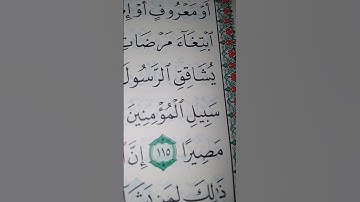 أَوۡ مَعۡرُوفٍ أَوۡ
ٱبۡتِغَآءَ مَرۡضَاتِ
يُشَاقِقِ ٱلرَّسُولَ
سَبِيلِ ٱلۡمُؤۡمِنِينَ
مَصِيرًا ١١٥ إِنَّ
ذَٰلِكَ لِمَن